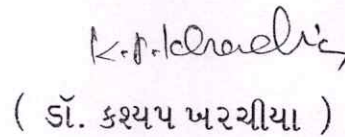 K.P.Kharchiya
( ડૉ. કશ્યપ ખરચીયા )